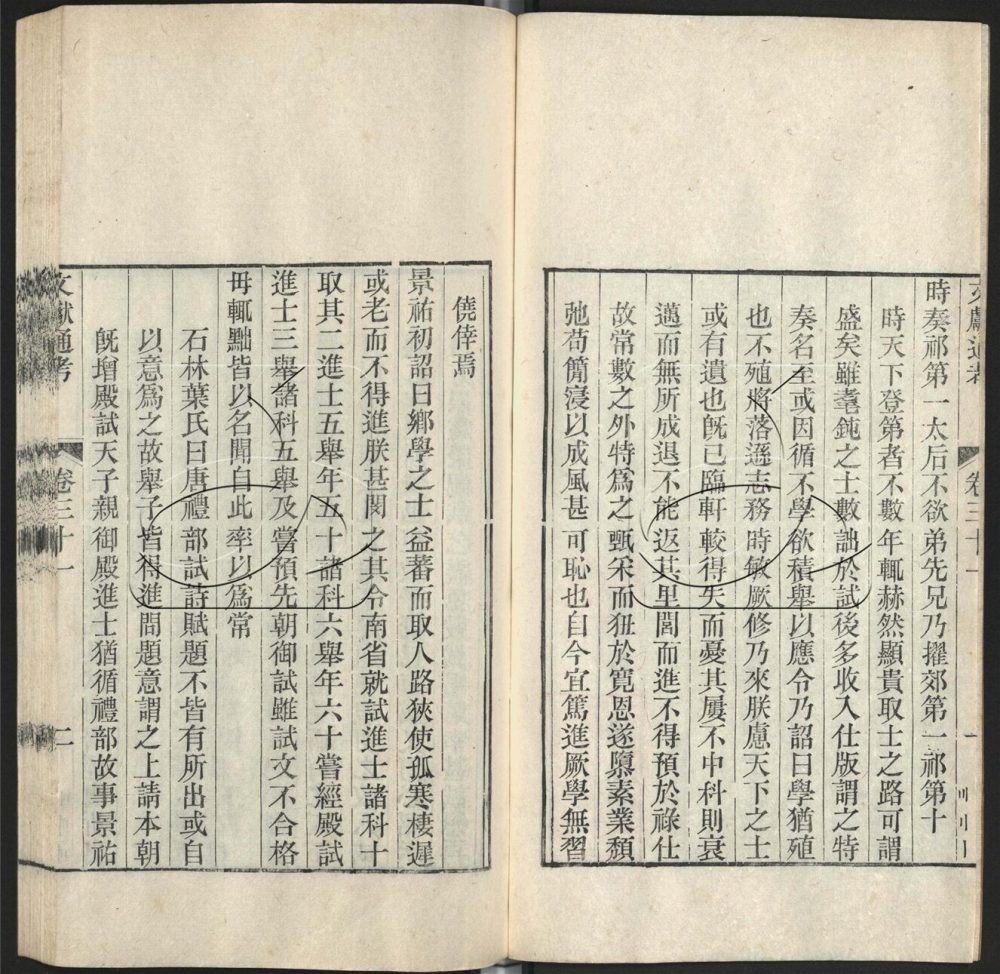 文獻通考 卷三十一 一
時奏祁第一太后不欲弟先兄乃擢郊第一祁第十
時天下登第者不數年輒赫然顯貴取士之路可謂
盛矣雖耄鈍之士數詘於試後多收入仕版謂之特
奏名至或因循不學欲積舉以應令乃詔曰學猶殖
也不殖將落遜志務時敏厥修乃來朕慮天下之士
或有遺也旣已臨軒較得失而憂其屢不中科則衰
邁而無所成退不能返其里閭而進不得預於祿仕
故常數之外特爲之甄采而狃於寬恩遂隳素業頹
弛苟簡寖以成風甚可恥也自今宜篤進厥學無習
僥倖焉
景祐初詔曰鄉學之士益蕃而取人路狹使孤寒棲遲
或老而不得進朕甚閔之其令南省就試進士諸科十
取其二進士五舉年五十諸科六舉年六十嘗經殿試
進士三舉諸科五舉及嘗預先朝御試雖試文不合格
毋輒黜皆以名聞自此率以爲常
石林葉氏曰唐禮部試詩賦題不皆有所出或自
以意爲之故舉子皆得進問題意謂之上請本朝
旣增殿試天子親御殿進士猶循禮部故事景祐
文獻通考 卷三十一 二